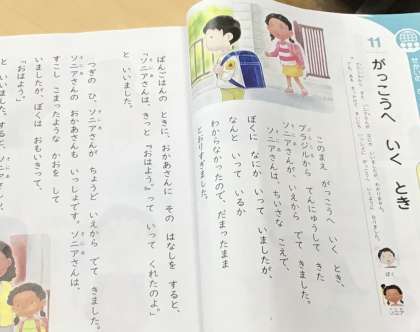 11
がっこうへ いく とき
ぼく
ソニア
このまえ がっこうへ いく とき、
ブラジルから てんにゅうして きた
ソニアさんが、いえから でて きました。
ソニアさんは、ちいさな こえで、
ぼくに なにか いって いましたが、
なんと いって いるか
わからなかったので、だまったまま
とおりすぎました。
ばんごはんの ときに、おかあさんに その はなしを すると、
「ソニアさんは、きっと 『おはよう。』って いって くれたのよ。」
と いいました。
つぎの ひ、ソニアさんが ちょうど いえから でて きました。
ソニアさんの おかあさんも いっしょです。ソニアさんは、
すこし こまったような かおを して
いましたが、ぼくは おもいきって、
「おはよう。」
と いいました。すると、